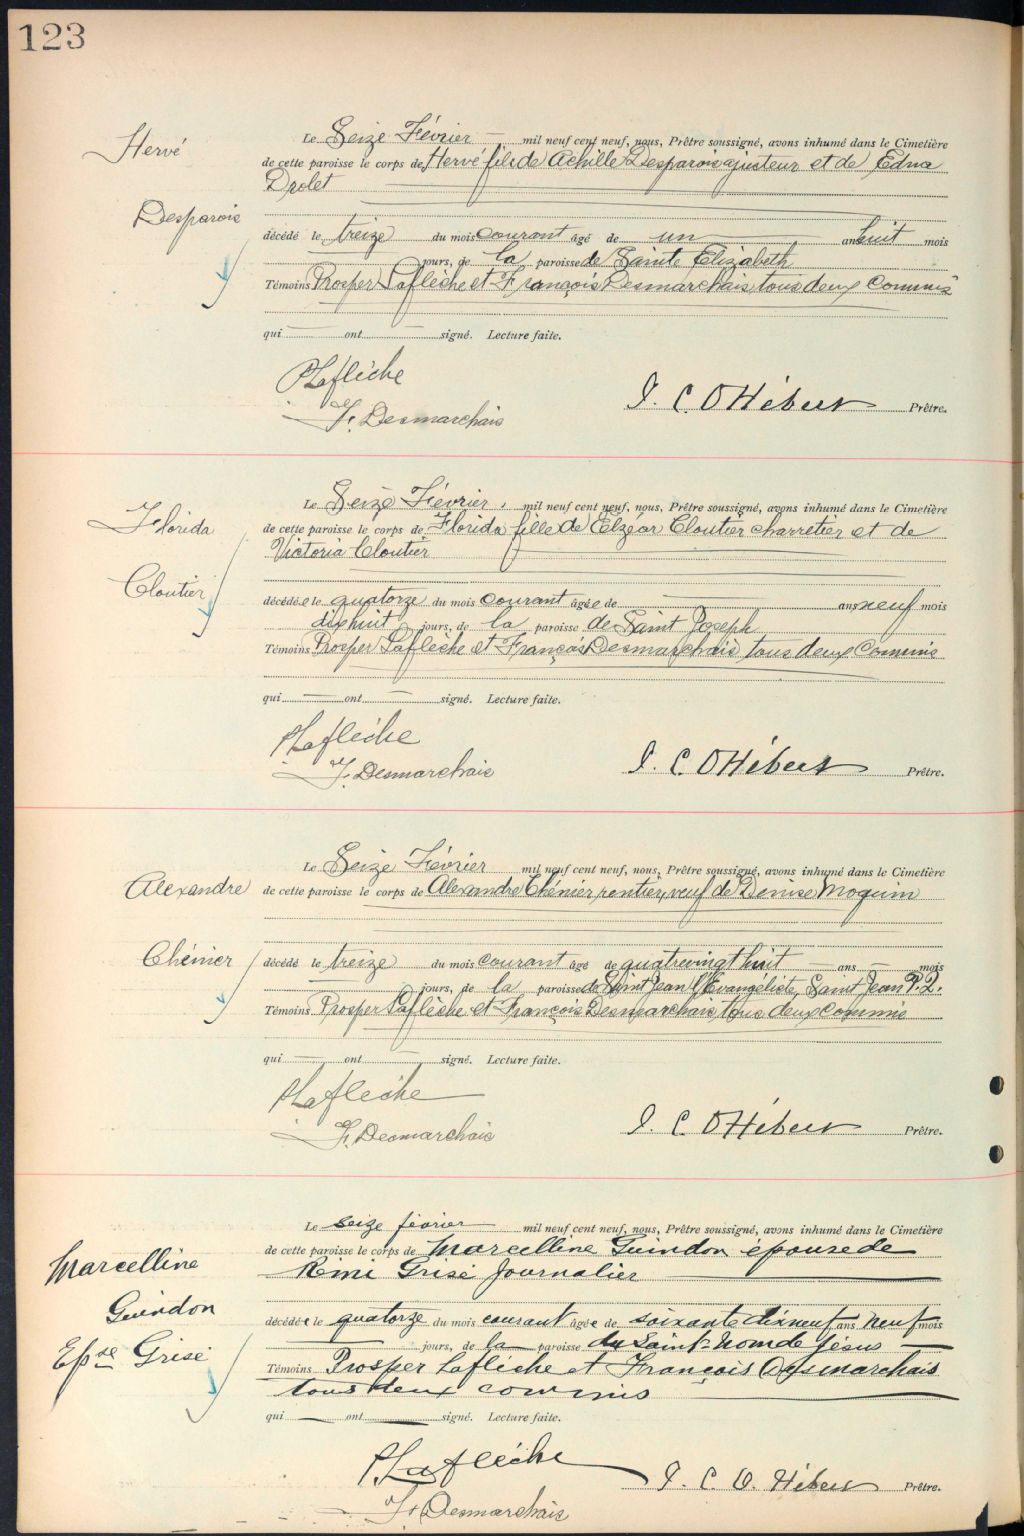 123
Hervé
Desparois
Le Seize Février mil neuf cent neuf, nous, Prêtre soussigné, avons inhumé dans le Cimetière
de cette paroisse le corps de Hervé fils de Achille Desparois ajusteur et de Edna
Drolet
décédé le treize du mois courant âgé de un an huit mois
jours, de la paroisse de Sainte Elizabeth
Témoins Prosper Laflèche et François Desmarchais, tous deux Commis
qui ont signé. Lecture faite.
P Laflèche
F. Desmarchais
J. C. O Hébert Prêtre.
Florida
Cloutier
Le Seize Février, mil neuf cent neuf, nous, Prêtre soussigné, avons inhumé dans le Cimetière
de cette paroisse le corps de Florida fille de Elzéar Cloutier charretier et de
Victoria Cloutier
décédée le quatorze du mois courant âgée de ans neuf mois
dix huit jours, de la paroisse de Saint Joseph
Témoins Prosper Laflèche et François Desmarchais tous deux Commis
qui ont signé. Lecture faite.
P Laflèche
F. Desmarchais
J. C. O Hébert Prêtre.
Alexandre
Chénier
Le Seize Février mil neuf cent neuf, nous, Prêtre soussigné, avons inhumé dans le Cimetière
de cette paroisse le corps de Alexandre Chénier, rentier, veuf de Denise Moquin
décédé le treize du mois courant âgé de quatrevingt huit ans mois
jours, de la paroisse de Saint Jean l'Évangéliste, Saint Jean P. Q.
Témoins Prosper Laflèche et François Desmarchais, tous deux Commis
qui ont signé. Lecture faite.
P Laflèche
F. Desmarchais
J. C. O Hébert Prêtre.
Marcelline
Guindon
Epse Grisé
Le seize février mil neuf cent neuf, nous, Prêtre soussigné, avons inhumé dans le Cimetière
de cette paroisse le corps de Marcelline Guindon épouse de
Rémi Grisé Journalier
décédée le quatorze du mois courant âgée de soixante dixneuf ans neuf mois
jours, de la paroisse du Saint-Nom de Jésus
Témoins Prosper Laflèche et François Desmarchais
tous deux commis
qui ont signé. Lecture faite.
P Laflèche
F. Desmarchais
J. C. O. Hébert Prêtre.